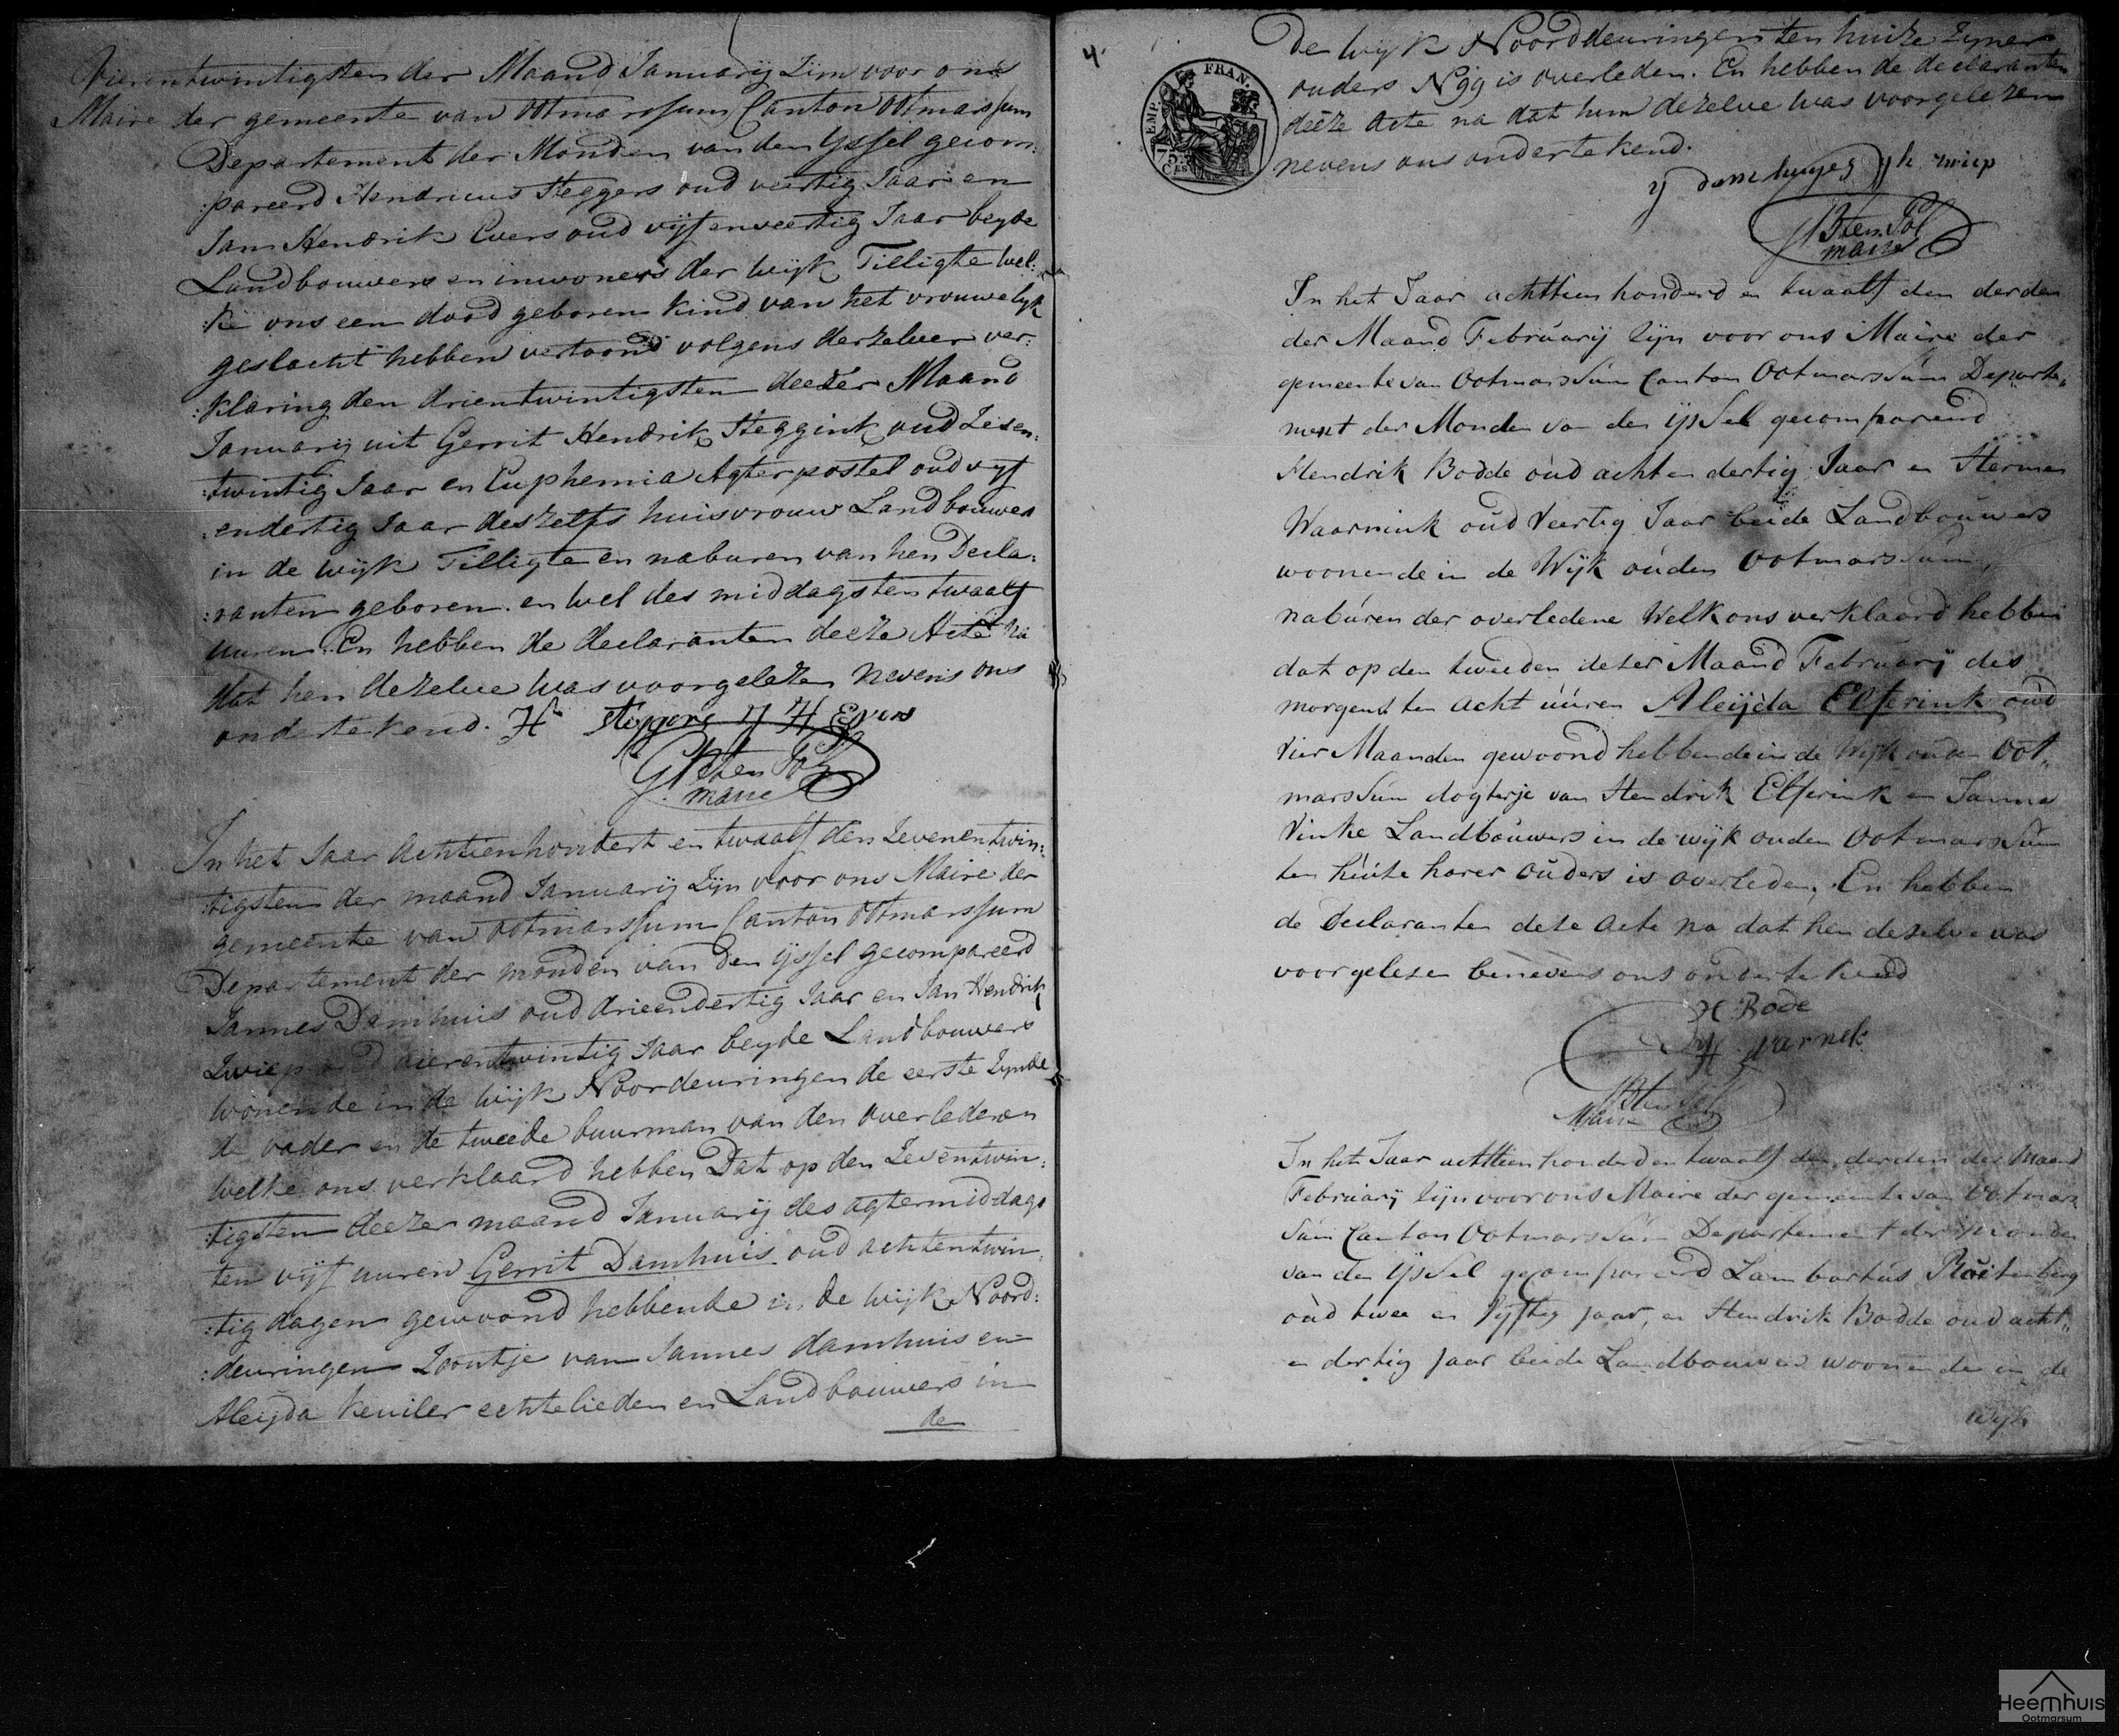 Vierentwintigsten der Maand Januarij Zijn voor ons
Maire der gemeente van Ottmarssum Canton Ottmarssum
Departement der Monden van den Yssel gecom:
:pareerd Hendricus Steggers oud veertig Jaar en
Jan Hendrik Evers oud vijfenveertig Jaar beyde
Landbouwers en inwoners der wijk Tilligte wel:
:ke ons een dood geboren kind van het vrouwelyk
geslacht hebben vertoond volgens derzelver ver:
:klaring den drientwintigsten deezer Maand
Januarij uit Gerrit Hendrik Steggink oud Zesen:
:twintig Jaar en Euphemia Agterpostel oud vyf
:endertig Jaar deszelfs huisvrouw Landbouwer
in de wijk Tilligte en naburen van hen Decla:
:ranten geboren en wel des middags ten twaalf
uuren. En hebben de declaranten deeze Acte na
dat hen dezelve was voorgelezen nevens ons
ondertekend. H steggers J H Evers
G B ten Pol
maire
In het Jaar Achtienhondert en twaalf den Zevenentwin:
:tigsten der maand Januarij Zijn voor ons Maire der
gemeente van Ottmarssum Canton Ottmarssum
Departement der monden van den yssel gecompareerd
Jannes Damhuis oud drieendertig Jaar en Jan Hendrik
Zwiep oud vierentwintig Jaar beyde Landbouwers
wonende in de wijk Noordeuringen de eerste Zynde
de vader en de tweede buurman van den overledenen
welke ons verklaard hebben Dat op den Zeventwin:
:tigsten deezer maand Januarij des agtermiddags
ten vijf uuren Gerrit Damhuis oud achtentwin:
:tig dagen gewoond hebbende in de wijk Noord:
:deuringen Zoontje van Jannes damhuis en
Aleijda Keuiler echtelieden en Landbouwers in
de
4
TEMP. FRAN.
75
Ces
De wijk Noorddeuringen ten huize Zyner
ouders N 99 is overleden. En hebben de declaranten
deeze Acte na dat hun dezelve was voorgelezen
nevens ons ondertekend.
J damhuijes J h zwiep
G B ten Pol
maire
In het Jaar achttien honderd en twaalf den derden
der Maand Februarij zijn voor ons Maire der
gemeente van Ootmarssum Canton Ootmarssum Departe„
ment der Monden van den ijssel gecompareerd
Hendrik Bodde oud acht en dertig Jaar en Hermen
Waarnink oud Veertig Jaar beide Landbouwers
woonende in de Wijk ouden Ootmarssum,
naburen der overledene Welk ons verklaard hebben
dat op den tweeden dezer Maand Februarij des
morgens ten acht uuren Aleijda Elferink oud
Vier Maanden gewoond hebbende in de Wijk ouden Oot„
marssum dogterje van Hendrik Elferink en Janna
Vinke Landbouwers in de wijk ouden Ootmarssum
ten huize harer ouders is overleden, En hebben
de declaranten deze acte na dat hen dezelve was
voorgelesen benevens ons ondertekend
H Bode
H warnek
G B ten Pol
Maire
In het Jaar achttien honderd en twaalf den derden der Maand
Februarij zijn voor ons Maire der gemeente van Ootmars
sum Canton Ootmarssum Departement der monden
van den ijssel gecompareerd Lambartus Ruitenberg
oud twee en Vijftig jaar, en Hendrik Bodde oud acht„
en dertig Jaar beide Landbouwers woonende in de
wijk
Heemhuis
Ootmarsum